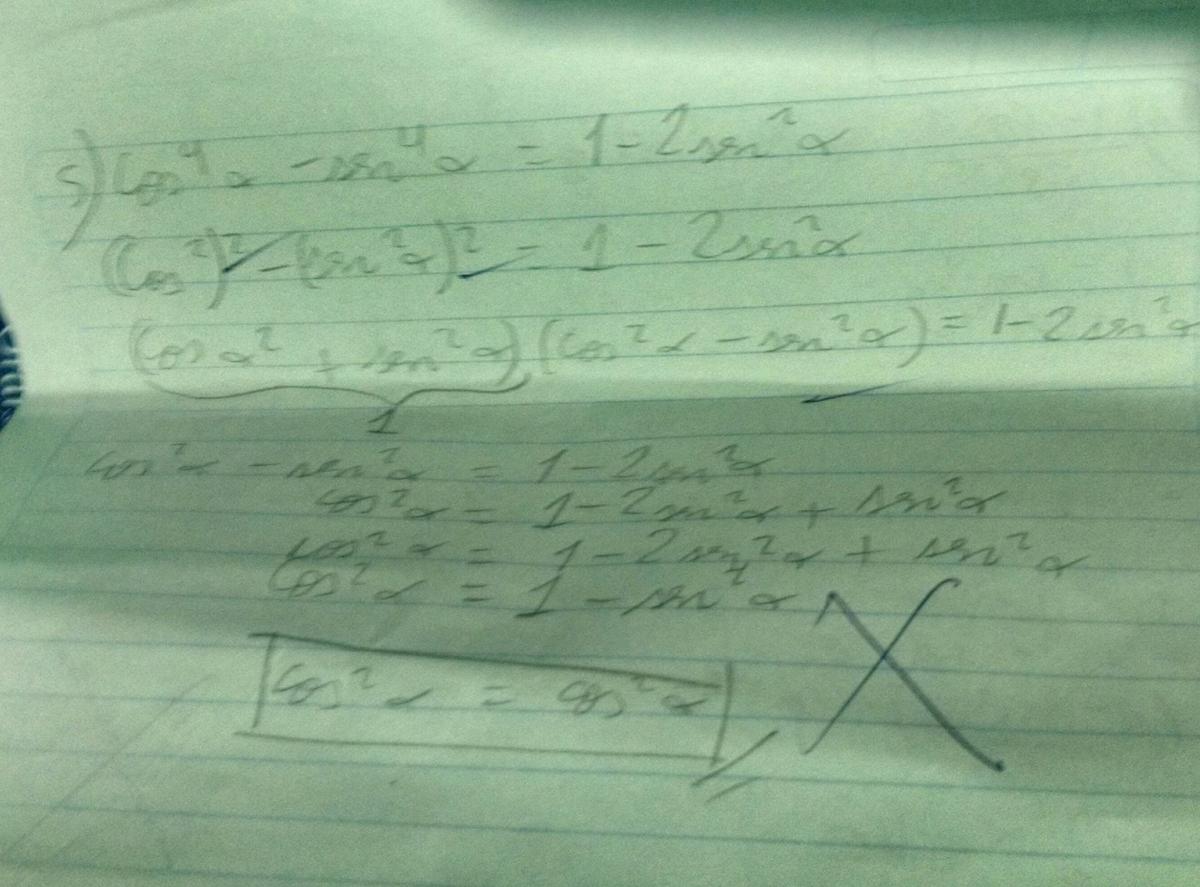 5) Cos⁴α - sen⁴α = 1 - 2sen²α
(Cos²)² - (sen²α)² = 1 - 2sen²α
(Cosα² + sen²α)(Cos²α - sen²α) = 1 - 2sen²α
1
cos²α - sen²α = 1 - 2sen²α
cos²α = 1 - 2sen²α + sen²α
cos²α = 1 - 2sen²α + sen²α
Cos²α = 1 - sen²α
Cos²α = cos²α